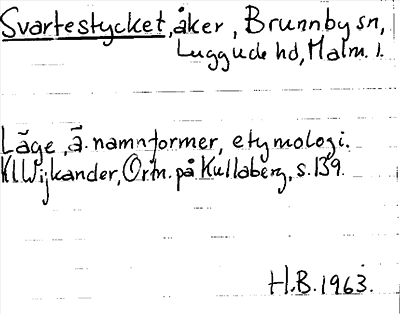 Svartestycket, åker, Brunnby sn,
Luggude hd, Malm. l.
Läge, ä. namnformer, etymologi.
Kl Wijkander, Ortn. på Kullaberg, s. 139.
H.B. 1963.